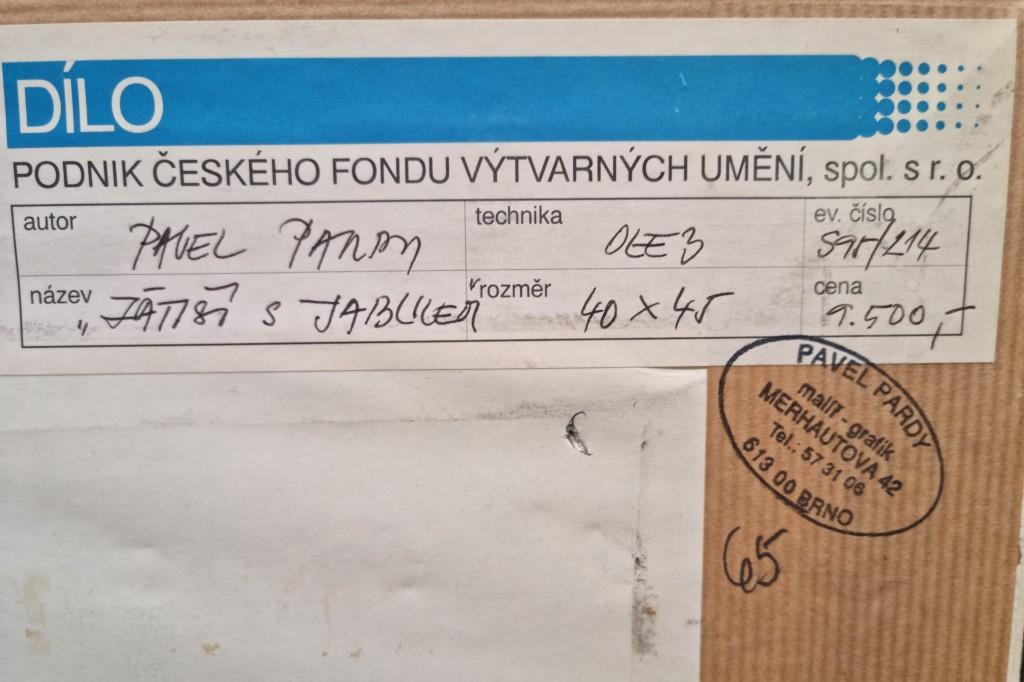 DÍLO
PODNIK ČESKÉHO FONDU VÝTVARNÝCH UMĚNÍ, spol. s r. o.
autor PAVEL PARDY technika OLEJ ev. číslo
název „ZÁTIŠÍ S JABLKEM" rozměr 40 x 45 cena 9.500,-
PAVEL PARDY
malíř - grafik
MERHAUTOVA 42
Tel.: 57 31 06
613 00 BRNO
65